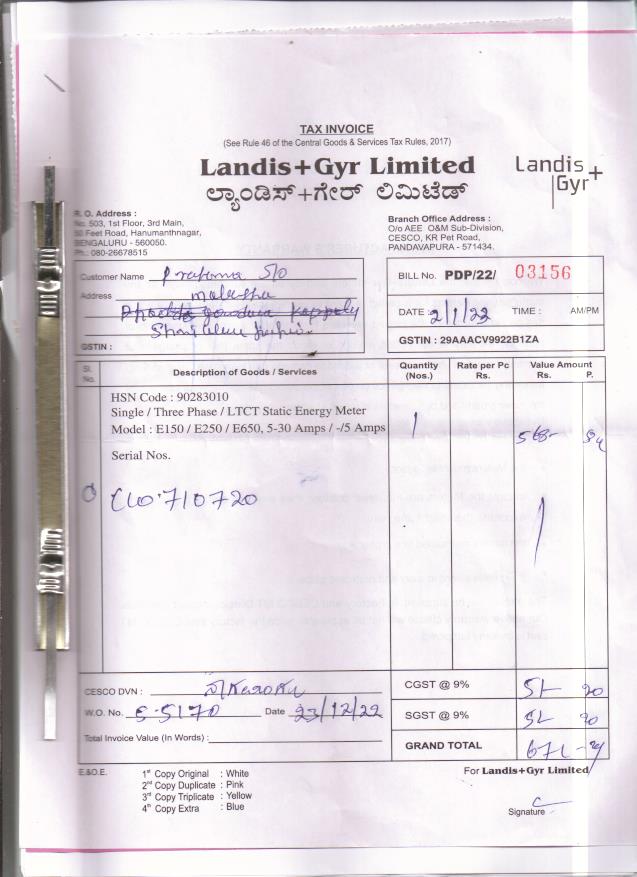 TAX INVOICE
(See Rule 46 of the Central Goods & Services Tax Rules, 2017)
Landis+Gyr Limited
ಲ್ಯಾಂಡಿಸ್+ಗೇರ್ ಲಿಮಿಟೆಡ್
Landis+
Gyr
R. O. Address :
No. 503, 1st Floor, 3rd Main,
50 Feet Road, Hanumanthnagar,
BENGALURU - 560050.
Ph.: 080-26678515
Branch Office Address :
O/o AEE O&M Sub-Division,
CESCO, KR Pet Road,
PANDAVAPURA - 571434.
Customer Name S/O
Address
GSTIN :
BILL No. PDP/22/ 03156
DATE : TIME : AM/PM
GSTIN : 29AAACV9922B1ZA
Sl. No. Description of Goods / Services Quantity (Nos.) Rate per Pc Rs. Value Amount Rs. P.
HSN Code : 90283010
Single / Three Phase / LTCT Static Energy Meter
Model : E150 / E250 / E650, 5-30 Amps / -/5 Amps 1
Serial Nos.
710720
CESCO DVN :
W.O. No. 5-5170 Date 23/12/22
Total Invoice Value (In Words) :
CGST @ 9%
SGST @ 9%
GRAND TOTAL
E.&O.E.
1st Copy Original : White
2nd Copy Duplicate : Pink
3rd Copy Triplicate : Yellow
4th Copy Extra : Blue
For Landis+Gyr Limited
Signature